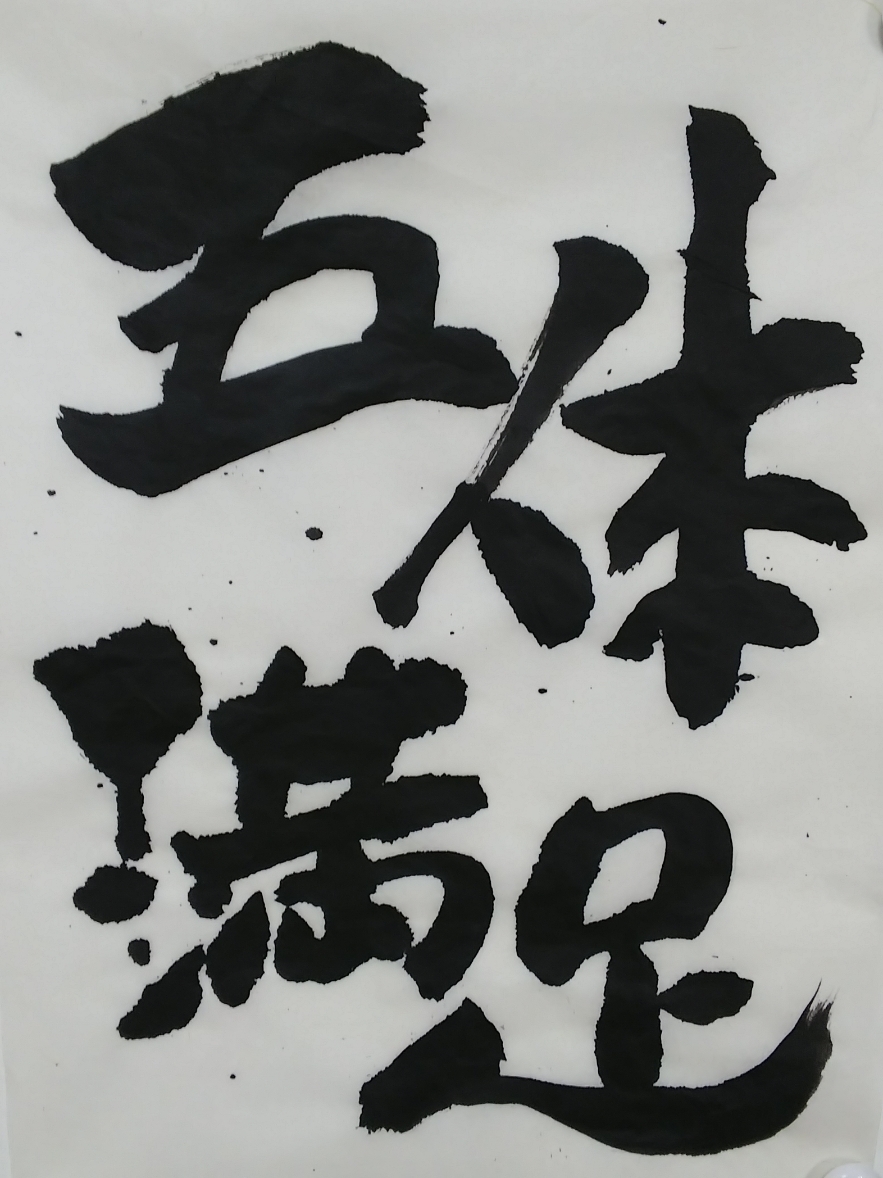 五体
満足